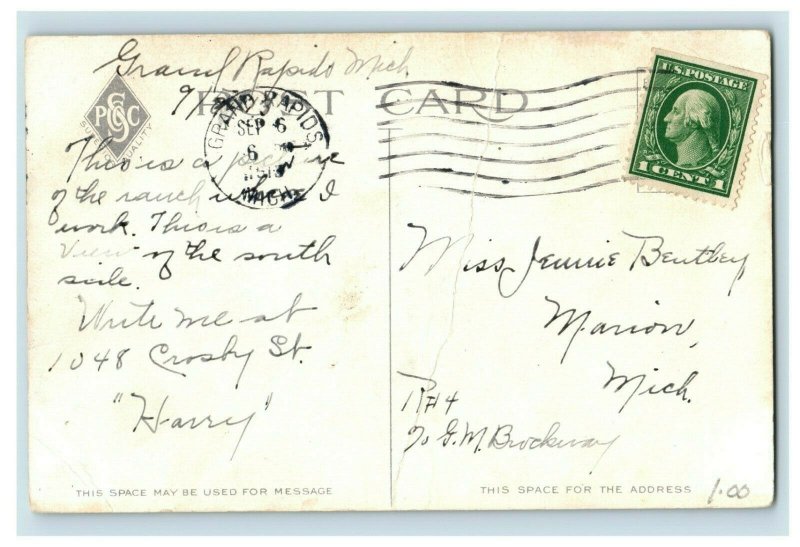 Grand Rapids Mich
POST CARD
GRAND RAPIDS
SEP 6
6
MICH.
U.S. POSTAGE
1 CENT 1
PSCC
QUALITY
This is a picture
of the ranch where I
work. This is a
View of the south
side.
Write me at
1048 Crosby St.
"Harry"
Miss Jennie Bentley
Marion,
Mich.
R#4
℅ G.M. Brockway
THIS SPACE MAY BE USED FOR MESSAGE
THIS SPACE FOR THE ADDRESS
1.00